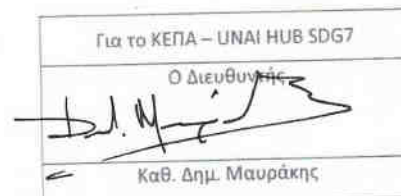 Για το ΚΕΠΑ – UNAI HUB SDG7
Ο Διευθυντής
Καθ. Δημ. Μαυράκης